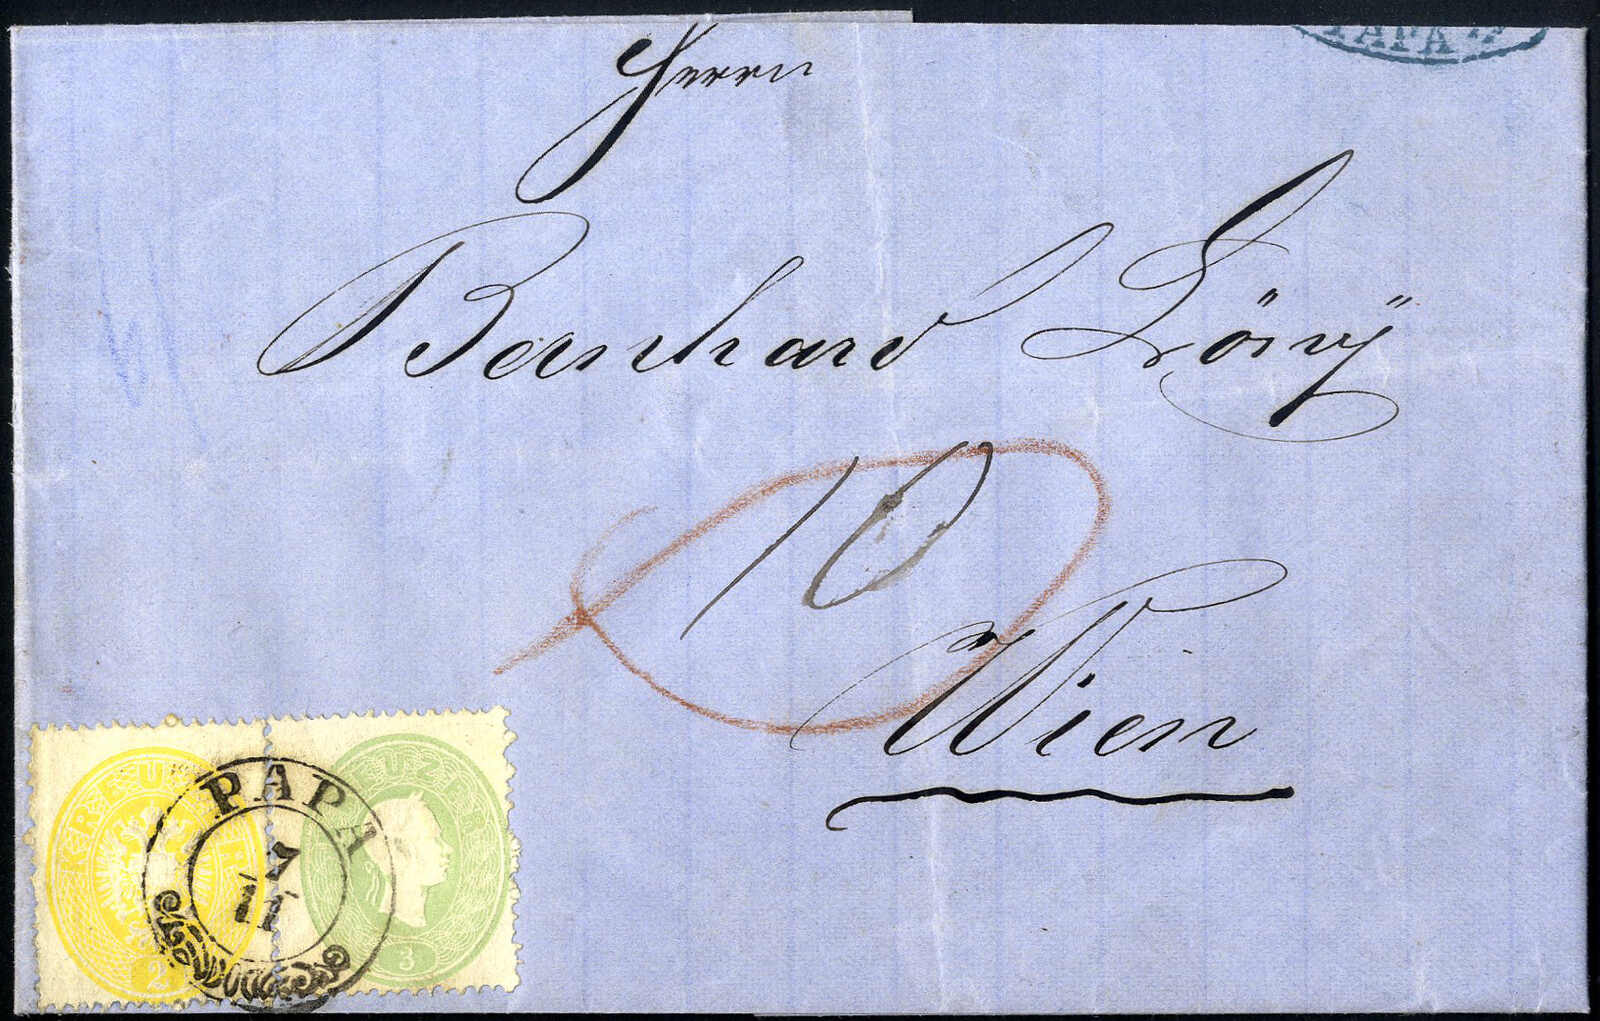 PAPA
Herrn
Bernhard Löwÿ
10
Wien
KREUZER
2
KREUZER
3
PAPA
7
11